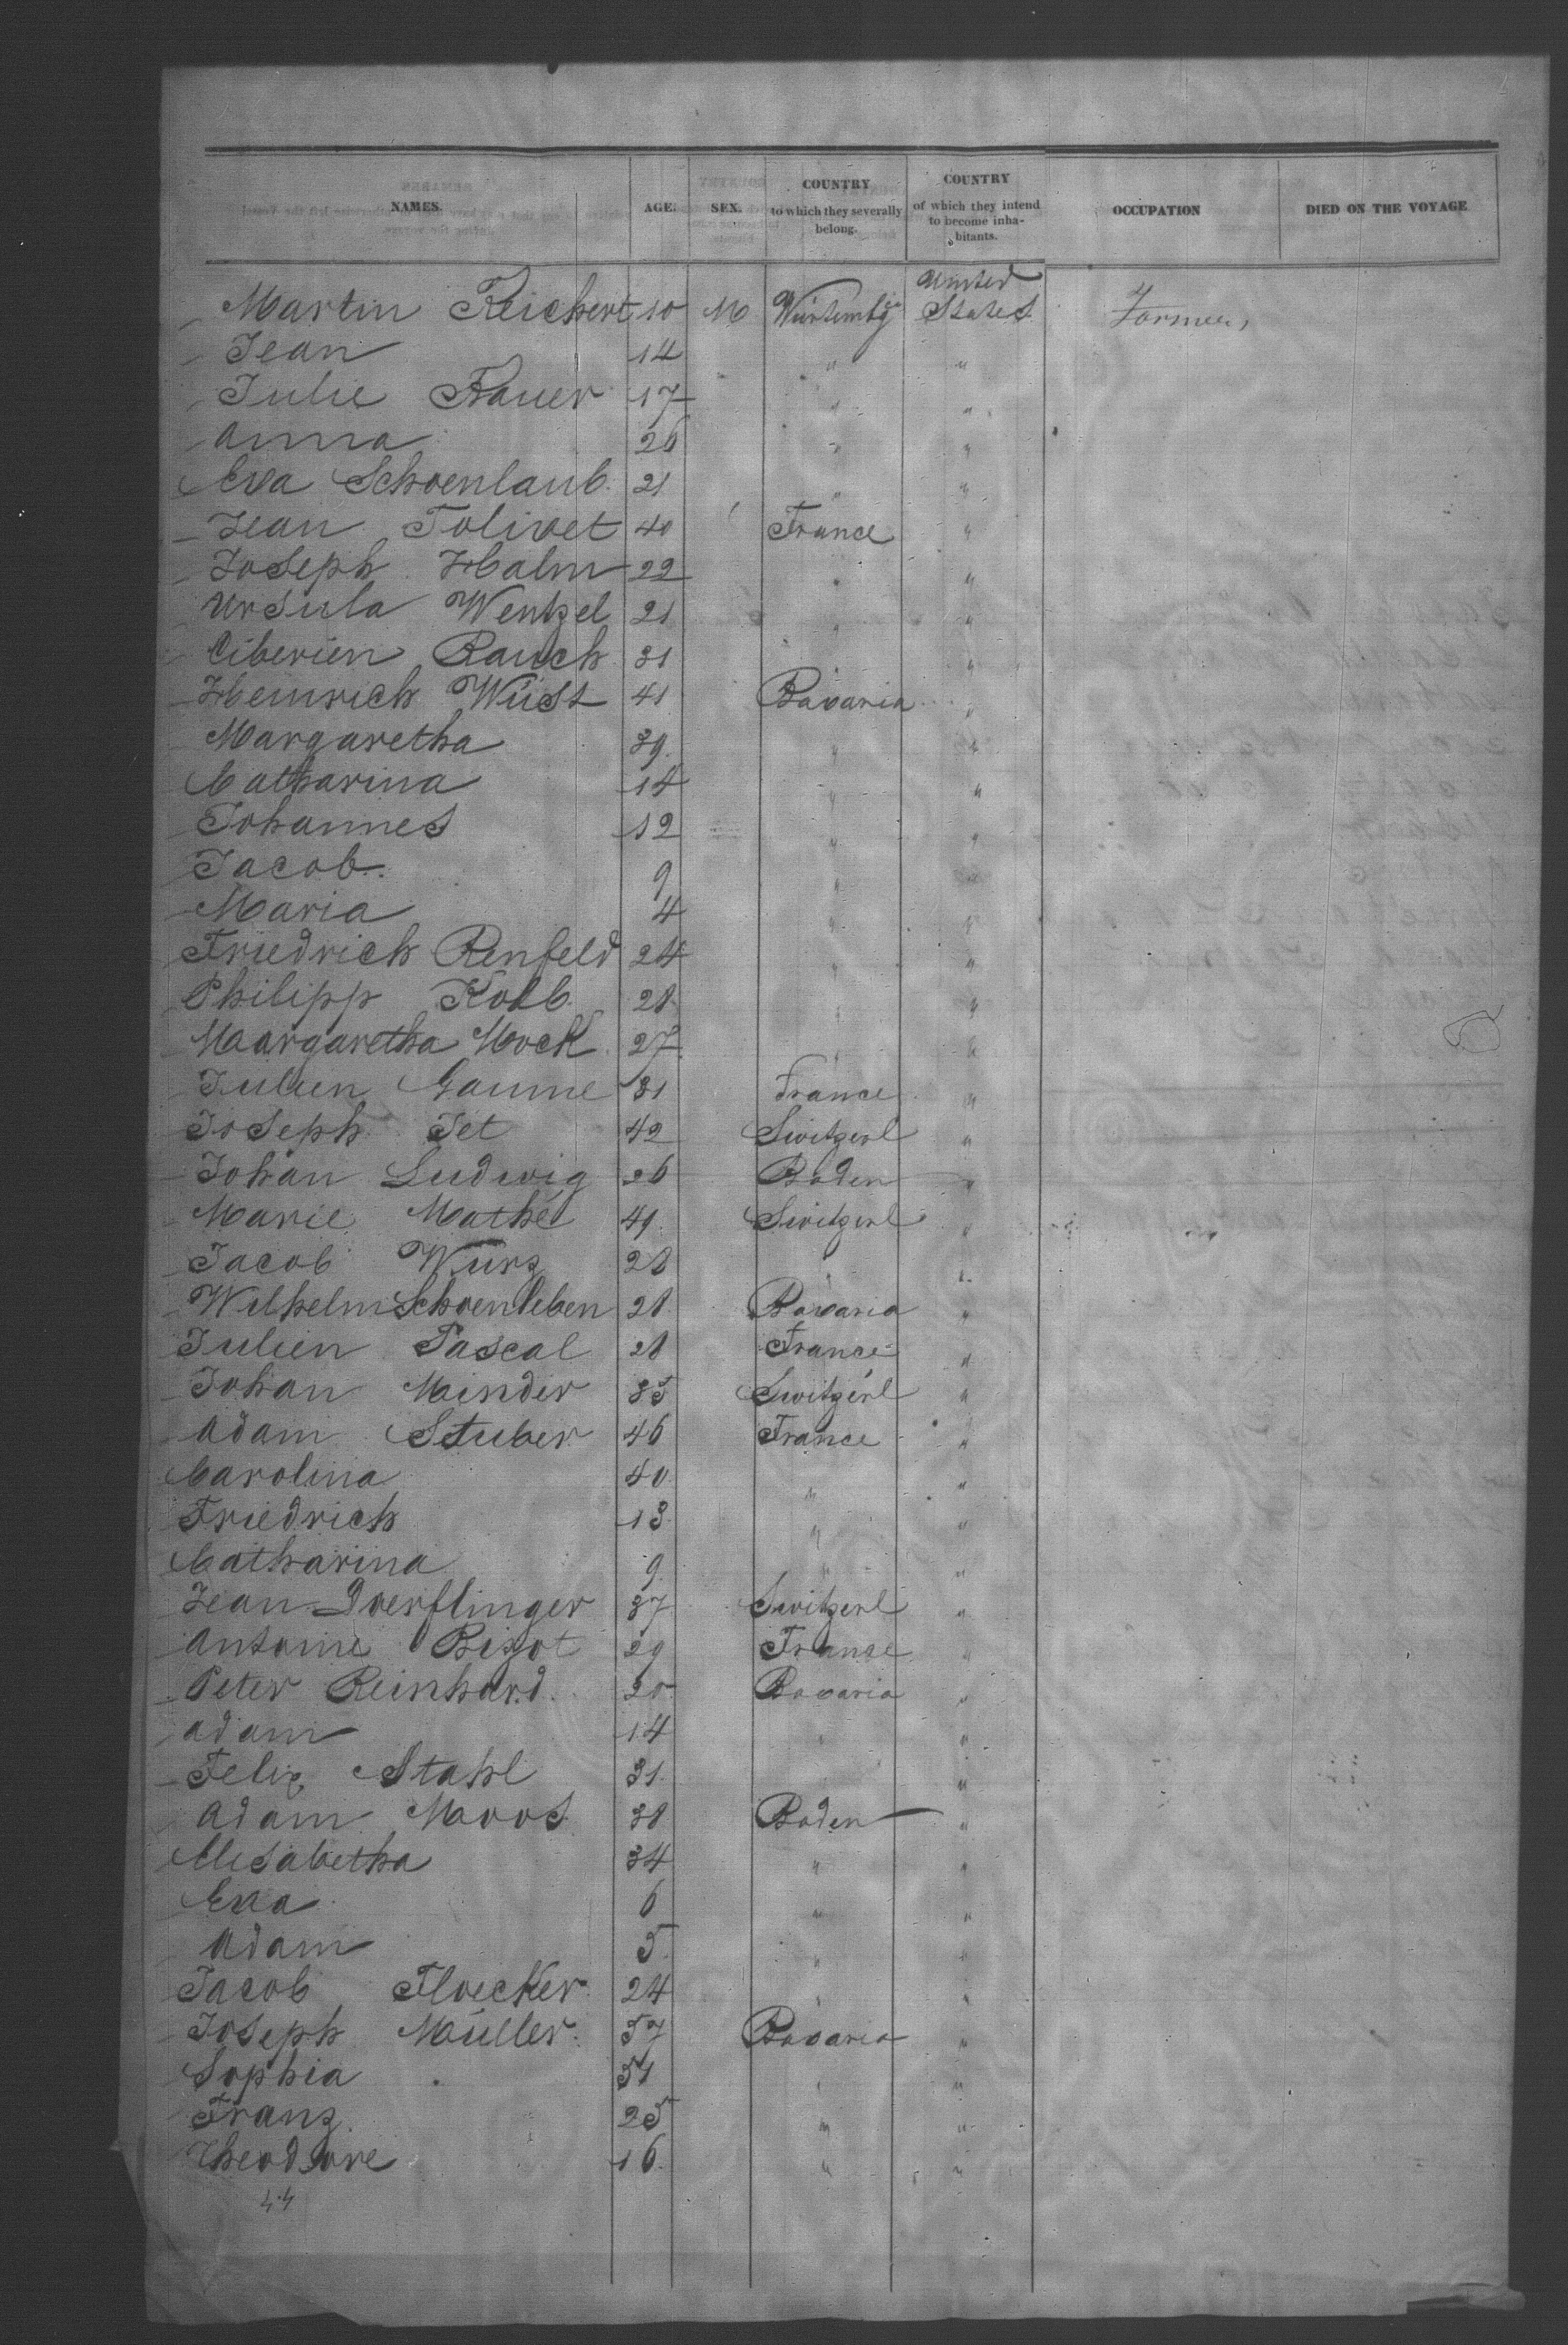 NAMES. AGE. SEX. COUNTRY to which they severally belong. COUNTRY of which they intend to become inhabitants. OCCUPATION DIED ON THE VOYAGE
Martin Reichert 10 M Würtembg United States Farmer,
Jean 14 " "
Julie Bauer 17 " "
Anna 26 " "
Eva Schoenlaub 21 " "
Jean Tolivet 40 France "
Joseph Halm 22 " "
Ursula Wentzel 21 " "
Ciberien Rauch 31 " "
Heinrich Wüst 41 Bavaria "
Margaretha 39 " "
Catharina 14 " "
Johannes 12 " "
Jacob 9 " "
Maria 4 " "
Friedrich Renfeld 24 " "
Philipp Kolb 28 " "
Margaretha Mock 27 " "
Julien Gaume 31 France "
Joseph Jet 42 Switzerl "
Johan Ludwig 26 Baden "
Marie Mathé 49 Switzerl "
Jacob Wurz 28 " "
Wilhelm Schoenleben 28 Bavaria "
Julien Pascal 28 France "
Johan Minder 35 Switzerl "
Adam Stuber 46 France "
Carolina 40 " "
Friedrich 13 " "
Catharina 9 " "
Jean Doerflinger 37 Switzerl "
Antoine Bizot 29 France "
Peter Reinhard 20 Bavaria "
Adam 14 " "
Felix Stahl 31 " "
Adam Moos 38 Baden "
Elisabetha 34 " "
Eva 6 " "
Adam 5 " "
Jacob Floecker 24 " "
Joseph Müller 57 Bavaria "
Sophia 51 " "
Franz 25 " "
Theodore 16 " "
44